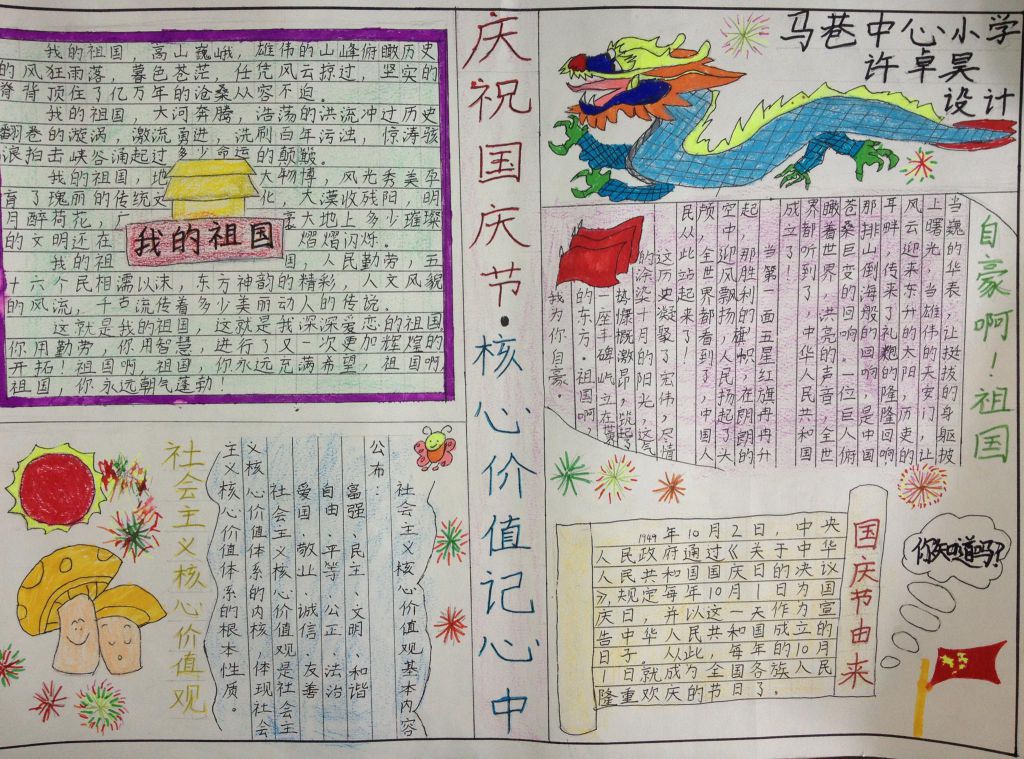 庆祝国庆节·核心价值记心中
马巷中心小学
许卓昊
设计
我的祖国，高山巍峨，雄伟的山峰俯瞰历史
的风狂雨落，暮色苍茫，任凭风云掠过，坚实的
脊背顶住了亿万年的沧桑从容不迫。
我的祖国，大河奔腾，浩荡的洪流冲过历史
翻卷的漩涡，激流勇进，洗刷百年污浊，惊涛骇
浪拍击峡谷涌起过多少命运的颠簸。
我的祖国，地大物博，风光秀美孕
育了瑰丽的传统文化，大漠收残阳，明
月醉荷花，广大地上多少璀璨
的文明还在熠熠闪烁。
我的祖国，人民勤劳，五
十六个民相濡以沫，东方神韵的精彩，人文风貌
的风流，千古流传着多少美丽动人的传说。
这就是我的祖国，这就是我深深爱恋的祖国
你用勤劳，你用智慧，进行了又一次更加辉煌的
开拓！祖国啊，祖国，你永远充满希望，祖国啊，
祖国，你永远朝气蓬勃！
我的祖国
自豪啊！祖国
当巍的华表，让挺拔的身躯披
上曙光，当雄伟的天安门，让
风云迎来东升的太阳，历吏的
耳畔，传来了礼炮的隆隆回响
那排山倒海般的回响，是中国
苍桑巨变的回响。一位巨人俯
瞰着世界，洪亮的声音，全世
界都听到了，中华人民共和国
成立了！
当第一面五星红旗冉冉升
起，那胜利的旗帜，在朗朗的
空中迎风飘扬，人民扬起了大
颅，全世界都看到了，中国人
民从此站起来了！
这历史凝聚了宏伟，尽情
的涂染十月的阳光，这气
势慷慨激昂，筑起了
一座丰碑，屹立在
的东方。祖国啊
我为你自豪。
社会主义核心价值观
社会主义核心价值观基本内容
公布：
富强、民主、文明、和谐
自由、平等、公正、法治
爱国、敬业、诚信、友善
社会主义核心价值观是社会主
义核心价值体系的内核，体现社会
主义核心价值体系的根本性质。
国庆节由来
1949年10月2日，中央
人民政府通过《关于中华
人民共和国国庆日的决议
》，规定每年10月1日为国
庆日，并以这一天作为宣
告中华人民共和国成立的
日子。从此，每年的10月
1日就成为全国各族人民
隆重欢庆的节日了。
你知道吗？